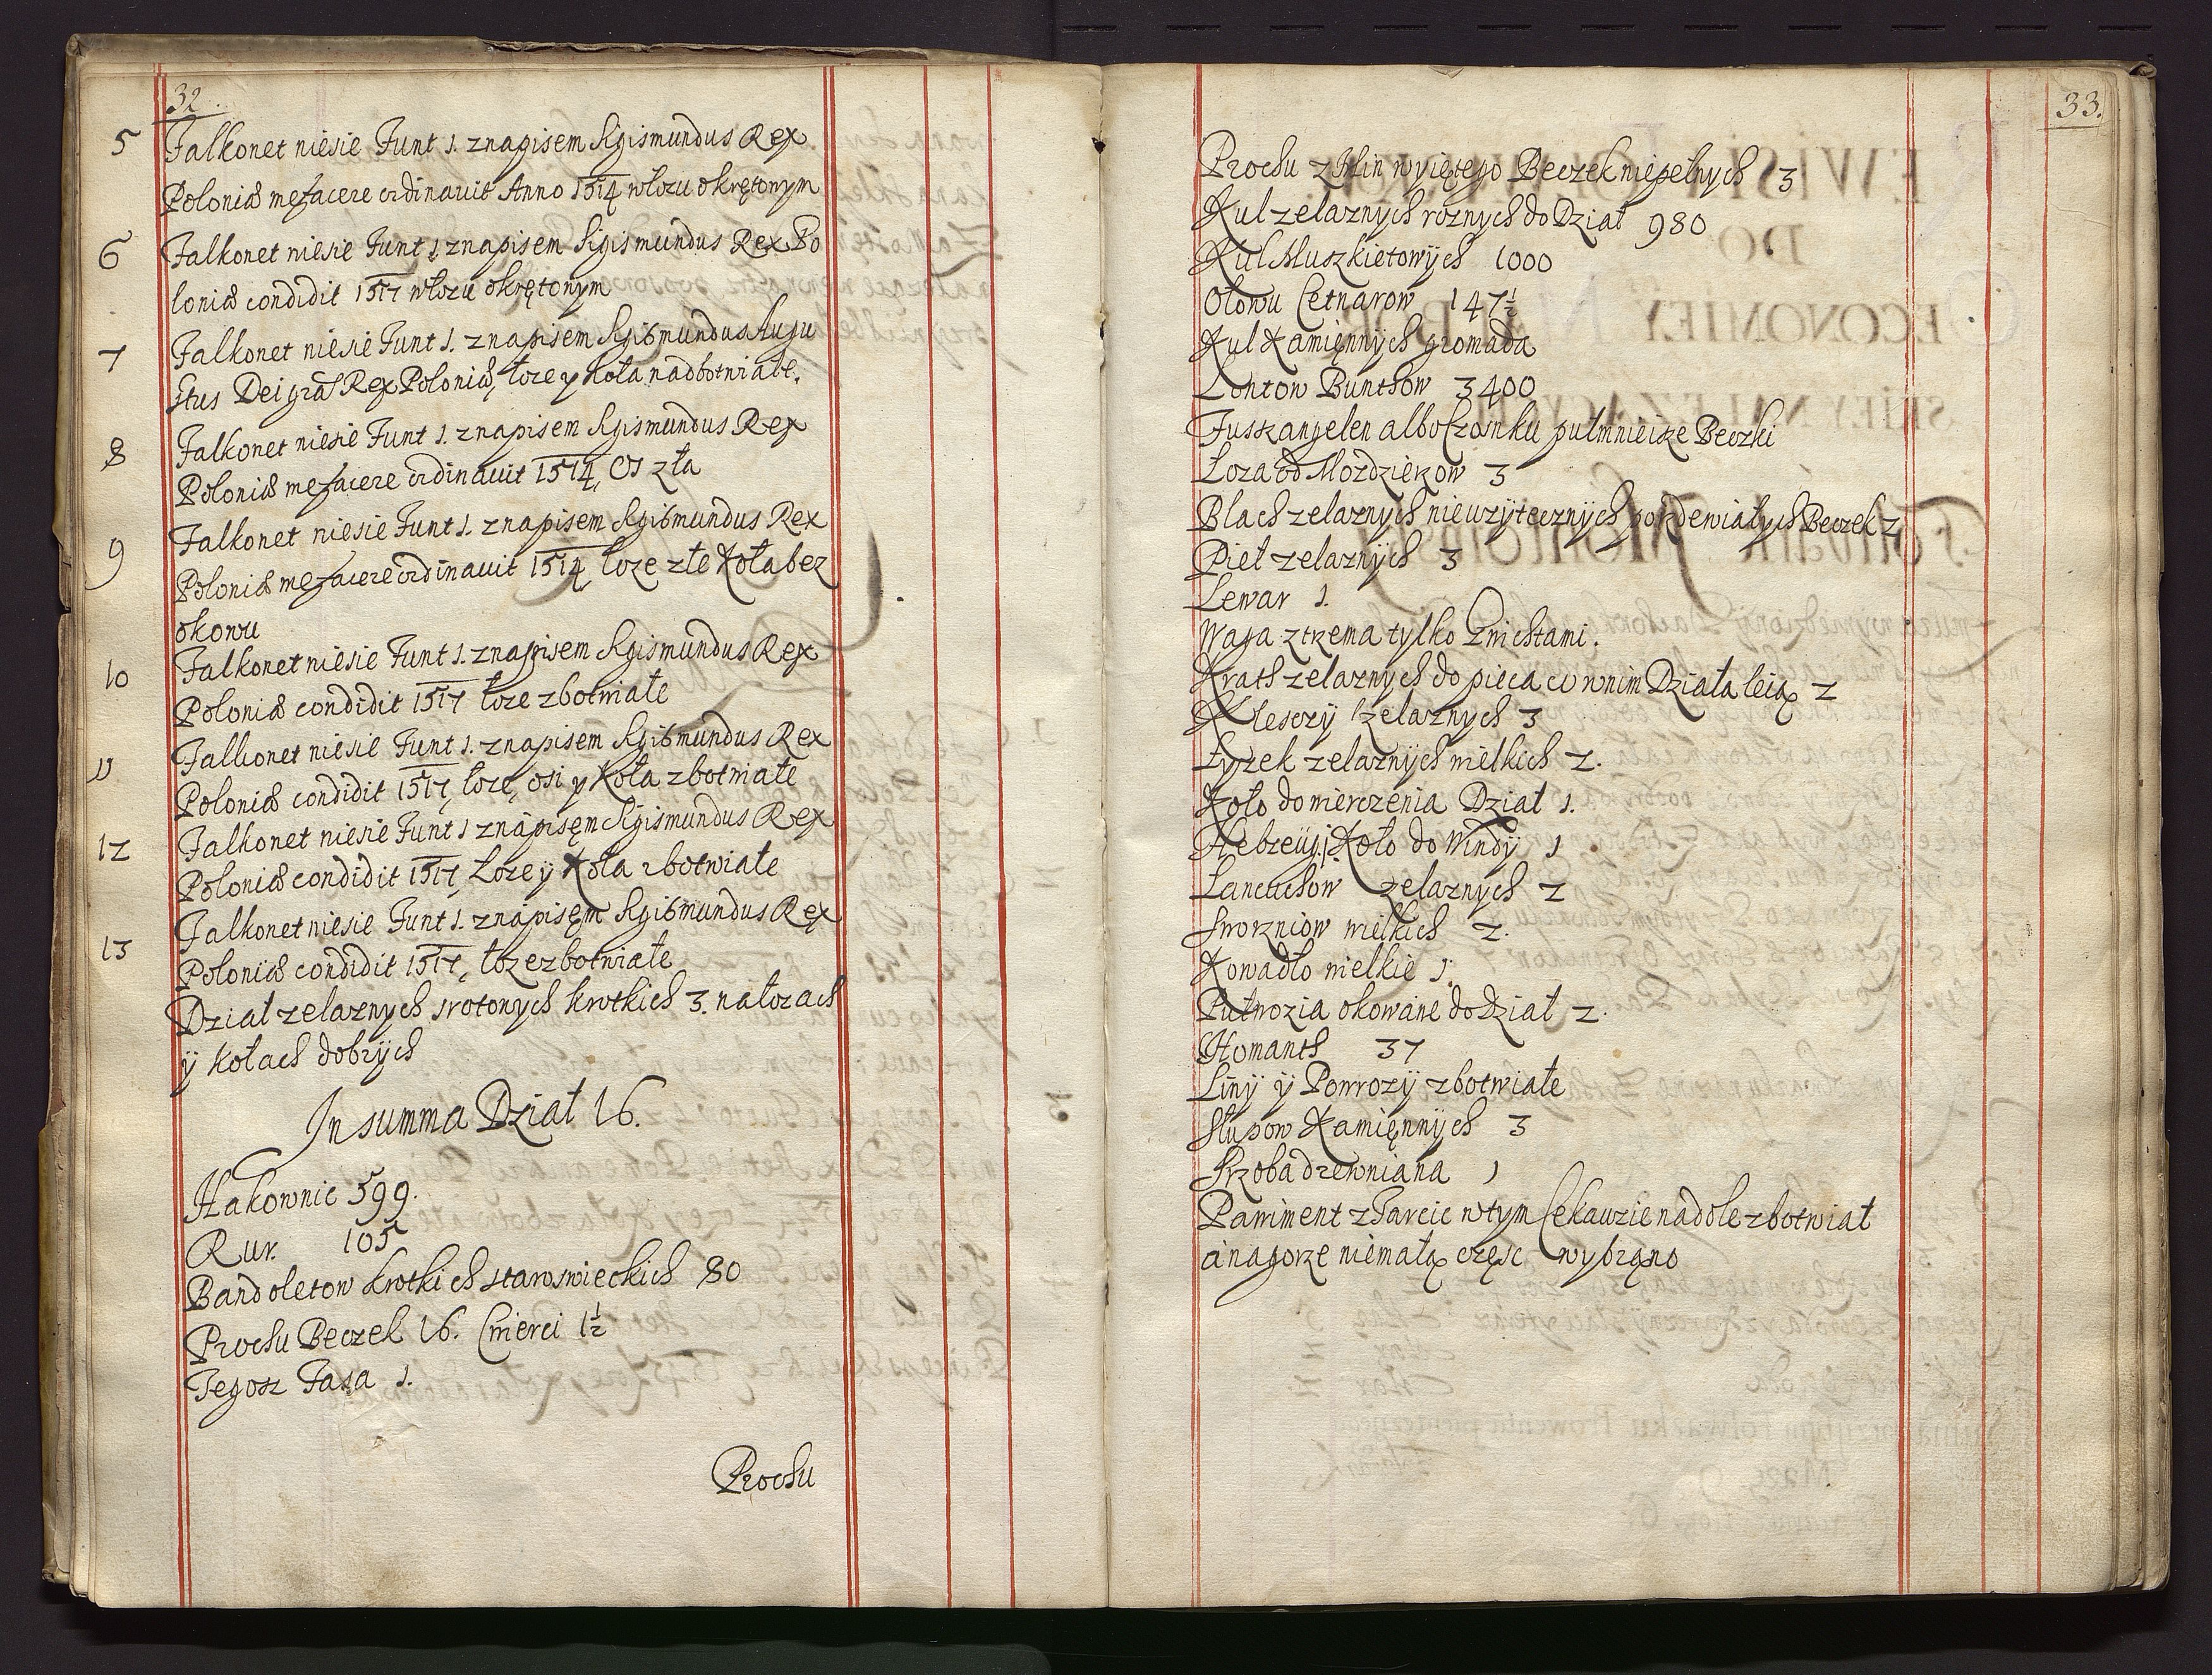 32.
5 Falkonet niesie Funt 1. z napisem Sigismundus Rex
Poloniæ me facere ordinauit Anno 1514 w łożu okrętonym
6 Falkonet niesie Funt 1 z napisem Sigismundus Rex Po
loniæ condidit 1517 w łożu okrętonym
7 Falkonet niesie Funt 1. z napisem Sigismundus Augu
stus Dei gra Rex Poloniæ, łoze y koła nadbotwiałe.
8 Falkonet niesie Funt 1. z napisem Sigismundus Rex
Poloniæ me facere ordinauit 1514, Oś zła
9 Falkonet niesie Funt 1. z napisem Sigismundus Rex
Poloniæ me facere ordinauit 1514, łoze złe Koła bez
okowu
10 Falkonet niesie Funt 1. z napisem Sigismundus Rex
Poloniæ condidit 1517 łoze zbotwiałe
11 Falkonet niesie Funt 1. z napisem Sigismundus Rex
Poloniæ condidit 1517, łoze, osi y Koła zbotwiałe
12 Falkonet niesie Funt 1 z napisem Sigismundus Rex
Poloniæ condidit 1517, Łoze y Koła zbotwiałe
13 Falkonet niesie Funt 1. z napisem Sigismundus Rex
Poloniæ condidit 1517, łoze zbotwiałe
Dział zelaznych srotonych krotkich 3. na łozach
ÿ kołach dobrÿch
In summa Dział 16.
Hakownic 599.
Rur. 105
Bandoletow krotkich staroswieckich 80
Prochu Beczek 16. Cwierci 1½
Tegosz Fasa 1.
Prochu
33.
Prochu z Min wyiętego Beczek niepełnych 3
Kul zelaznych roznych do Dział 980
Kul Muszkietowÿch 1000
Ołowu Cetnarow 147½
Kul Kamięnnÿch gromada
Lontow Buntkow 3400
Fuszangelen albo Czosnku pułmnieisze Beczki
Łoza od Mozdzierzow 3
Blach zelaznych nieuzÿtecznÿch pordewiałych Beczek 2
Pieł zelaznÿch 3
Lewar 1.
Waga z trzema tylko Gwichtami.
Krath zelaznych do pieca co w nim Działa leią 2
Klesczÿ zelaznych 3
Łyzek zelaznÿch wielkich 2.
Koło do wierczenia Dział 1.
Hebzeüg i Koło do Windÿ 1
Łancuchow zelaznych 2
Sworzniow wielkich 2.
Kowadło wielkie 1.
Pułwozia okowane do Dział 2.
Homanth 37
Linÿ ÿ Powrozÿ zbotwiałe
Słupow Kamięnnÿch 3
Szroba drzewniana 1
Pawiment z Tarcic w tym Cekauzie na dole zbotwiał
a na gorze niemałą częsc wybrąno